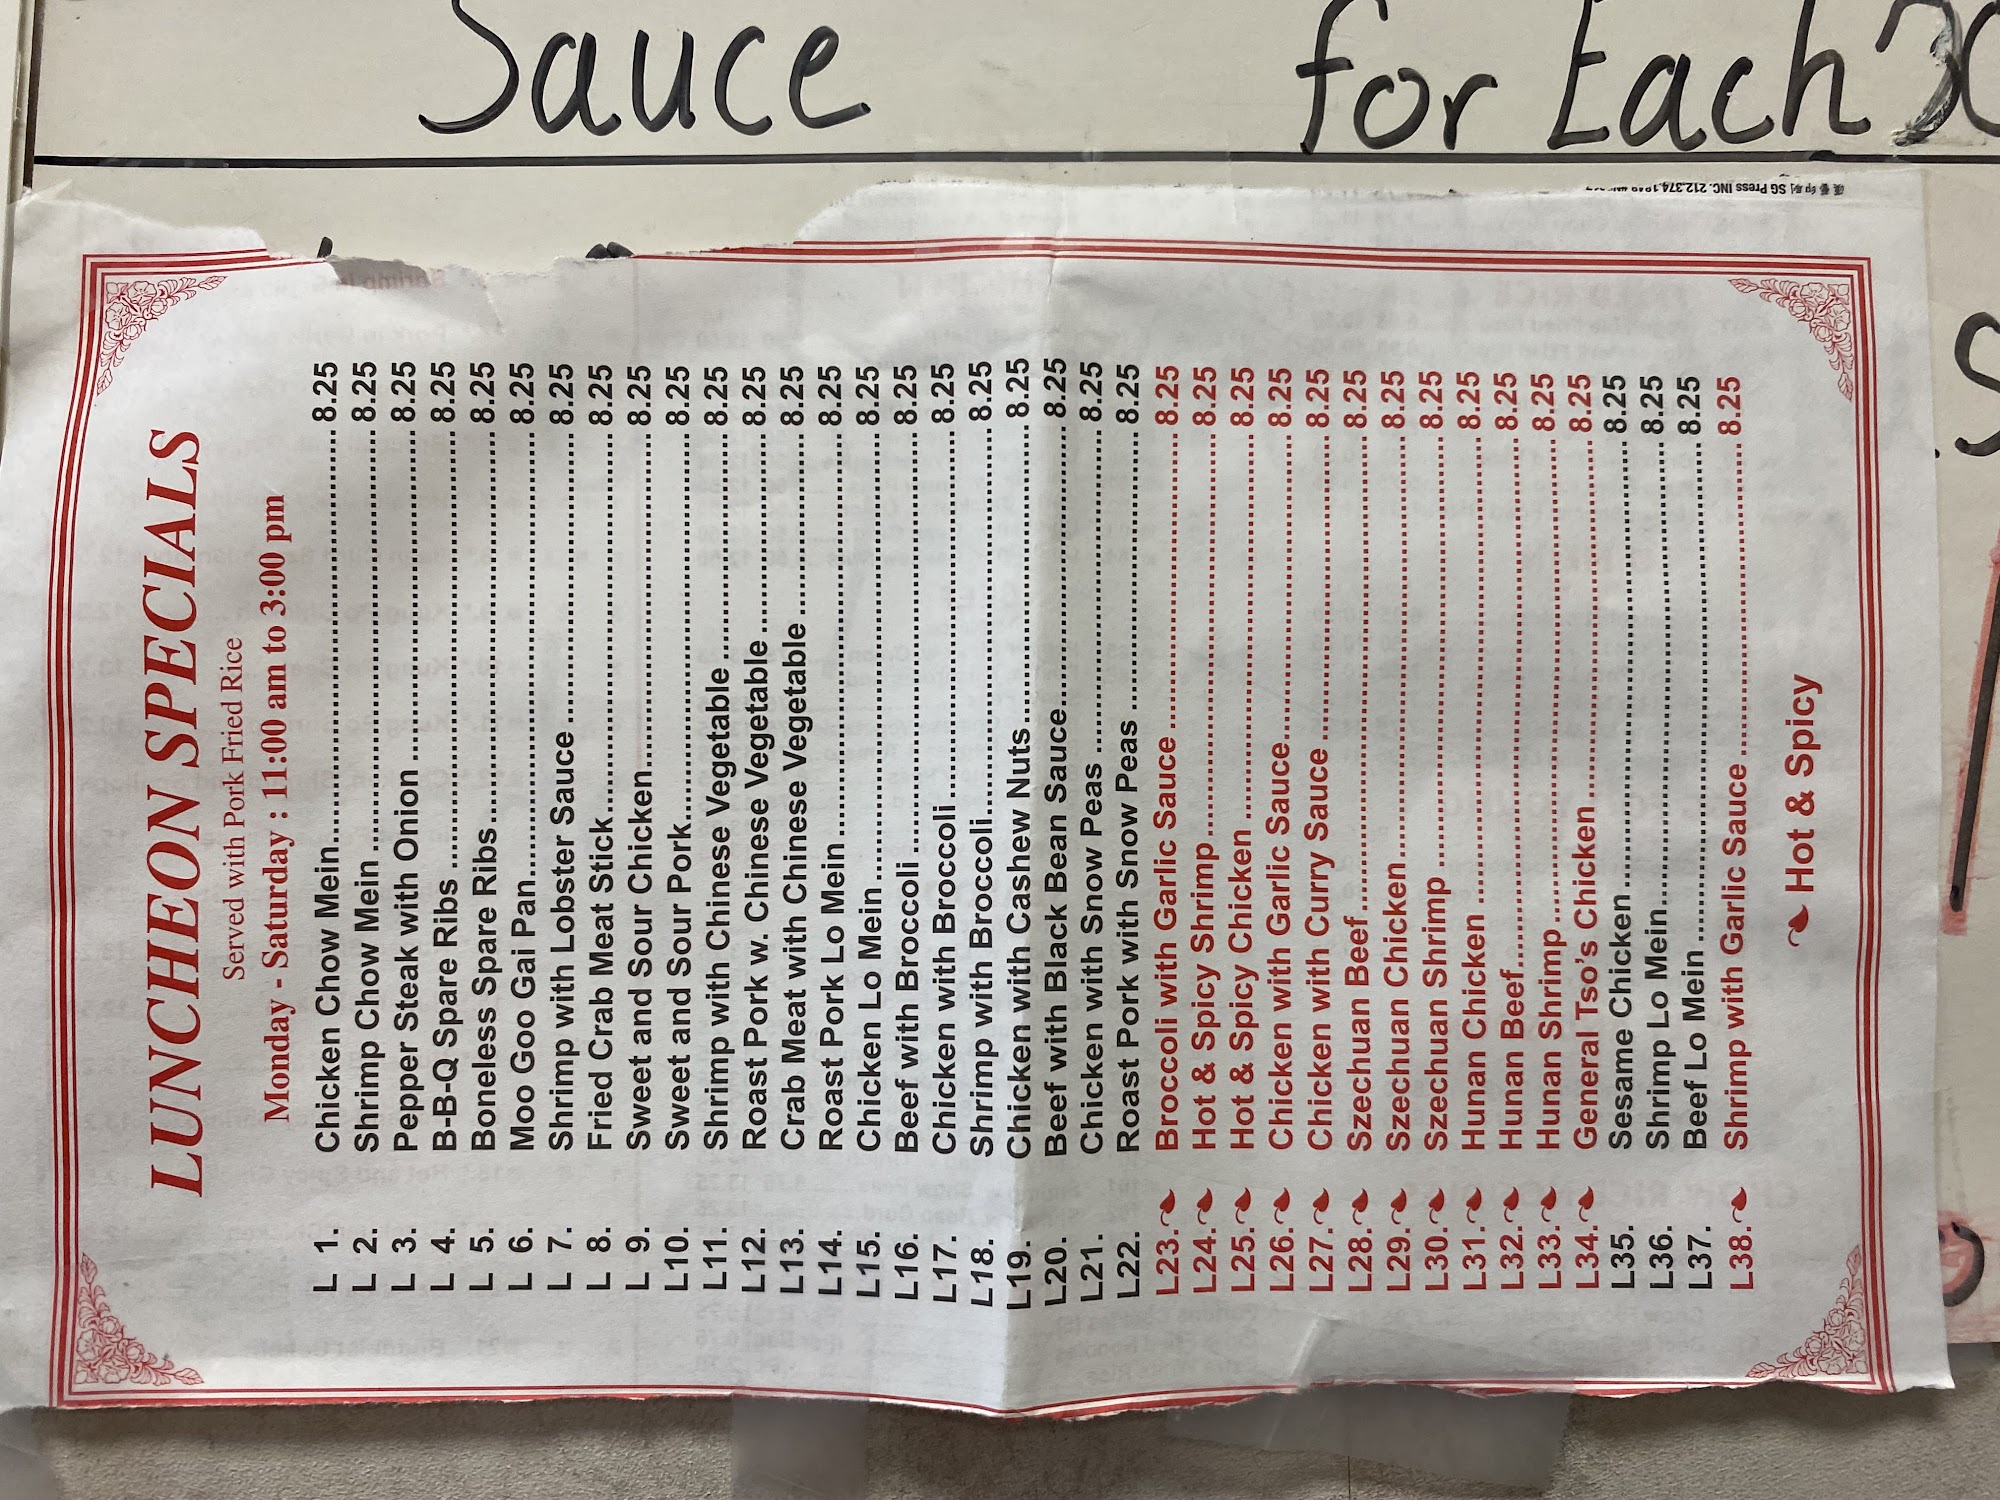 Sauce for Each
SG Press INC. 212.374.1848
LUNCHEON SPECIALS
Served with Pork Fried Rice
Monday - Saturday : 11:00 am to 3:00 pm
L 1. Chicken Chow Mein 8.25
L 2. Shrimp Chow Mein 8.25
L 3. Pepper Steak with Onion 8.25
L 4. B-B-Q Spare Ribs 8.25
L 5. Boneless Spare Ribs 8.25
L 6. Moo Goo Gai Pan 8.25
L 7. Shrimp with Lobster Sauce 8.25
L 8. Fried Crab Meat Stick 8.25
L 9. Sweet and Sour Chicken 8.25
L10. Sweet and Sour Pork 8.25
L11. Shrimp with Chinese Vegetable 8.25
L12. Roast Pork w. Chinese Vegetable 8.25
L13. Crab Meat with Chinese Vegetable 8.25
L14. Roast Pork Lo Mein 8.25
L15. Chicken Lo Mein 8.25
L16. Beef with Broccoli 8.25
L17. Chicken with Broccoli 8.25
L18. Shrimp with Broccoli 8.25
L19. Chicken with Cashew Nuts 8.25
L20. Beef with Black Bean Sauce 8.25
L21. Chicken with Snow Peas 8.25
L22. Roast Pork with Snow Peas 8.25
L23. Broccoli with Garlic Sauce 8.25
L24. Hot & Spicy Shrimp 8.25
L25. Hot & Spicy Chicken 8.25
L26. Chicken with Garlic Sauce 8.25
L27. Chicken with Curry Sauce 8.25
L28. Szechuan Beef 8.25
L29. Szechuan Chicken 8.25
L30. Szechuan Shrimp 8.25
L31. Hunan Chicken 8.25
L32. Hunan Beef 8.25
L33. Hunan Shrimp 8.25
L34. General Tso's Chicken 8.25
L35. Sesame Chicken 8.25
L36. Shrimp Lo Mein 8.25
L37. Beef Lo Mein 8.25
L38. Shrimp with Garlic Sauce 8.25
Hot & Spicy